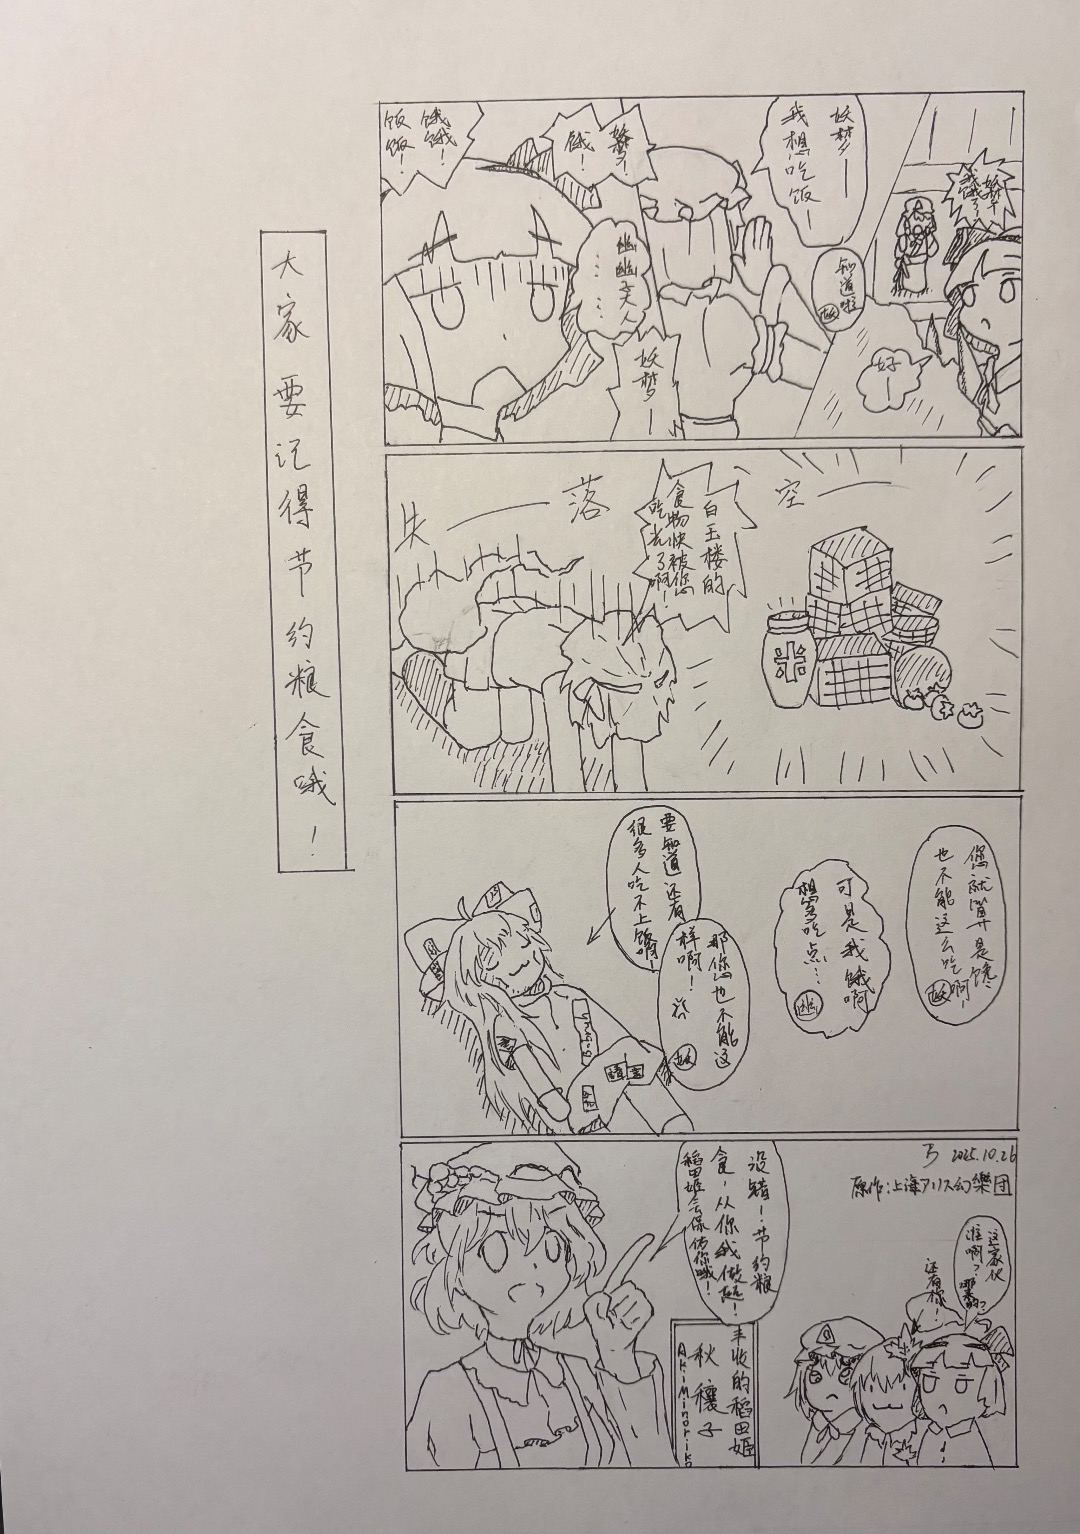 大家要记得节约粮食哦！
妖梦——
我饿了！
好——
妖梦——
我想吃饭——
知道啦
妖
妖梦——
饿——！
幽幽子大人
……
妖梦——
饿饿！
饭饭！
空——
落——
失
白玉楼的
食物快被您
吃光了啊！
您就算是馋
也不能这么吃啊！
妖
可是我饿啊
想多吃点…
幽
那您也不能这
样啊！
妖
要知道还有
很多人吃不上饭啊！
5 2025.10.26
原作：上海アリス幻樂団
这家伙
谁啊？哪来的？
还有你！
没错！节约粮
食，从你我做起！
稻田姬会保佑你哦！
丰收的稻田姬
秋穰子
Aki Minoriko